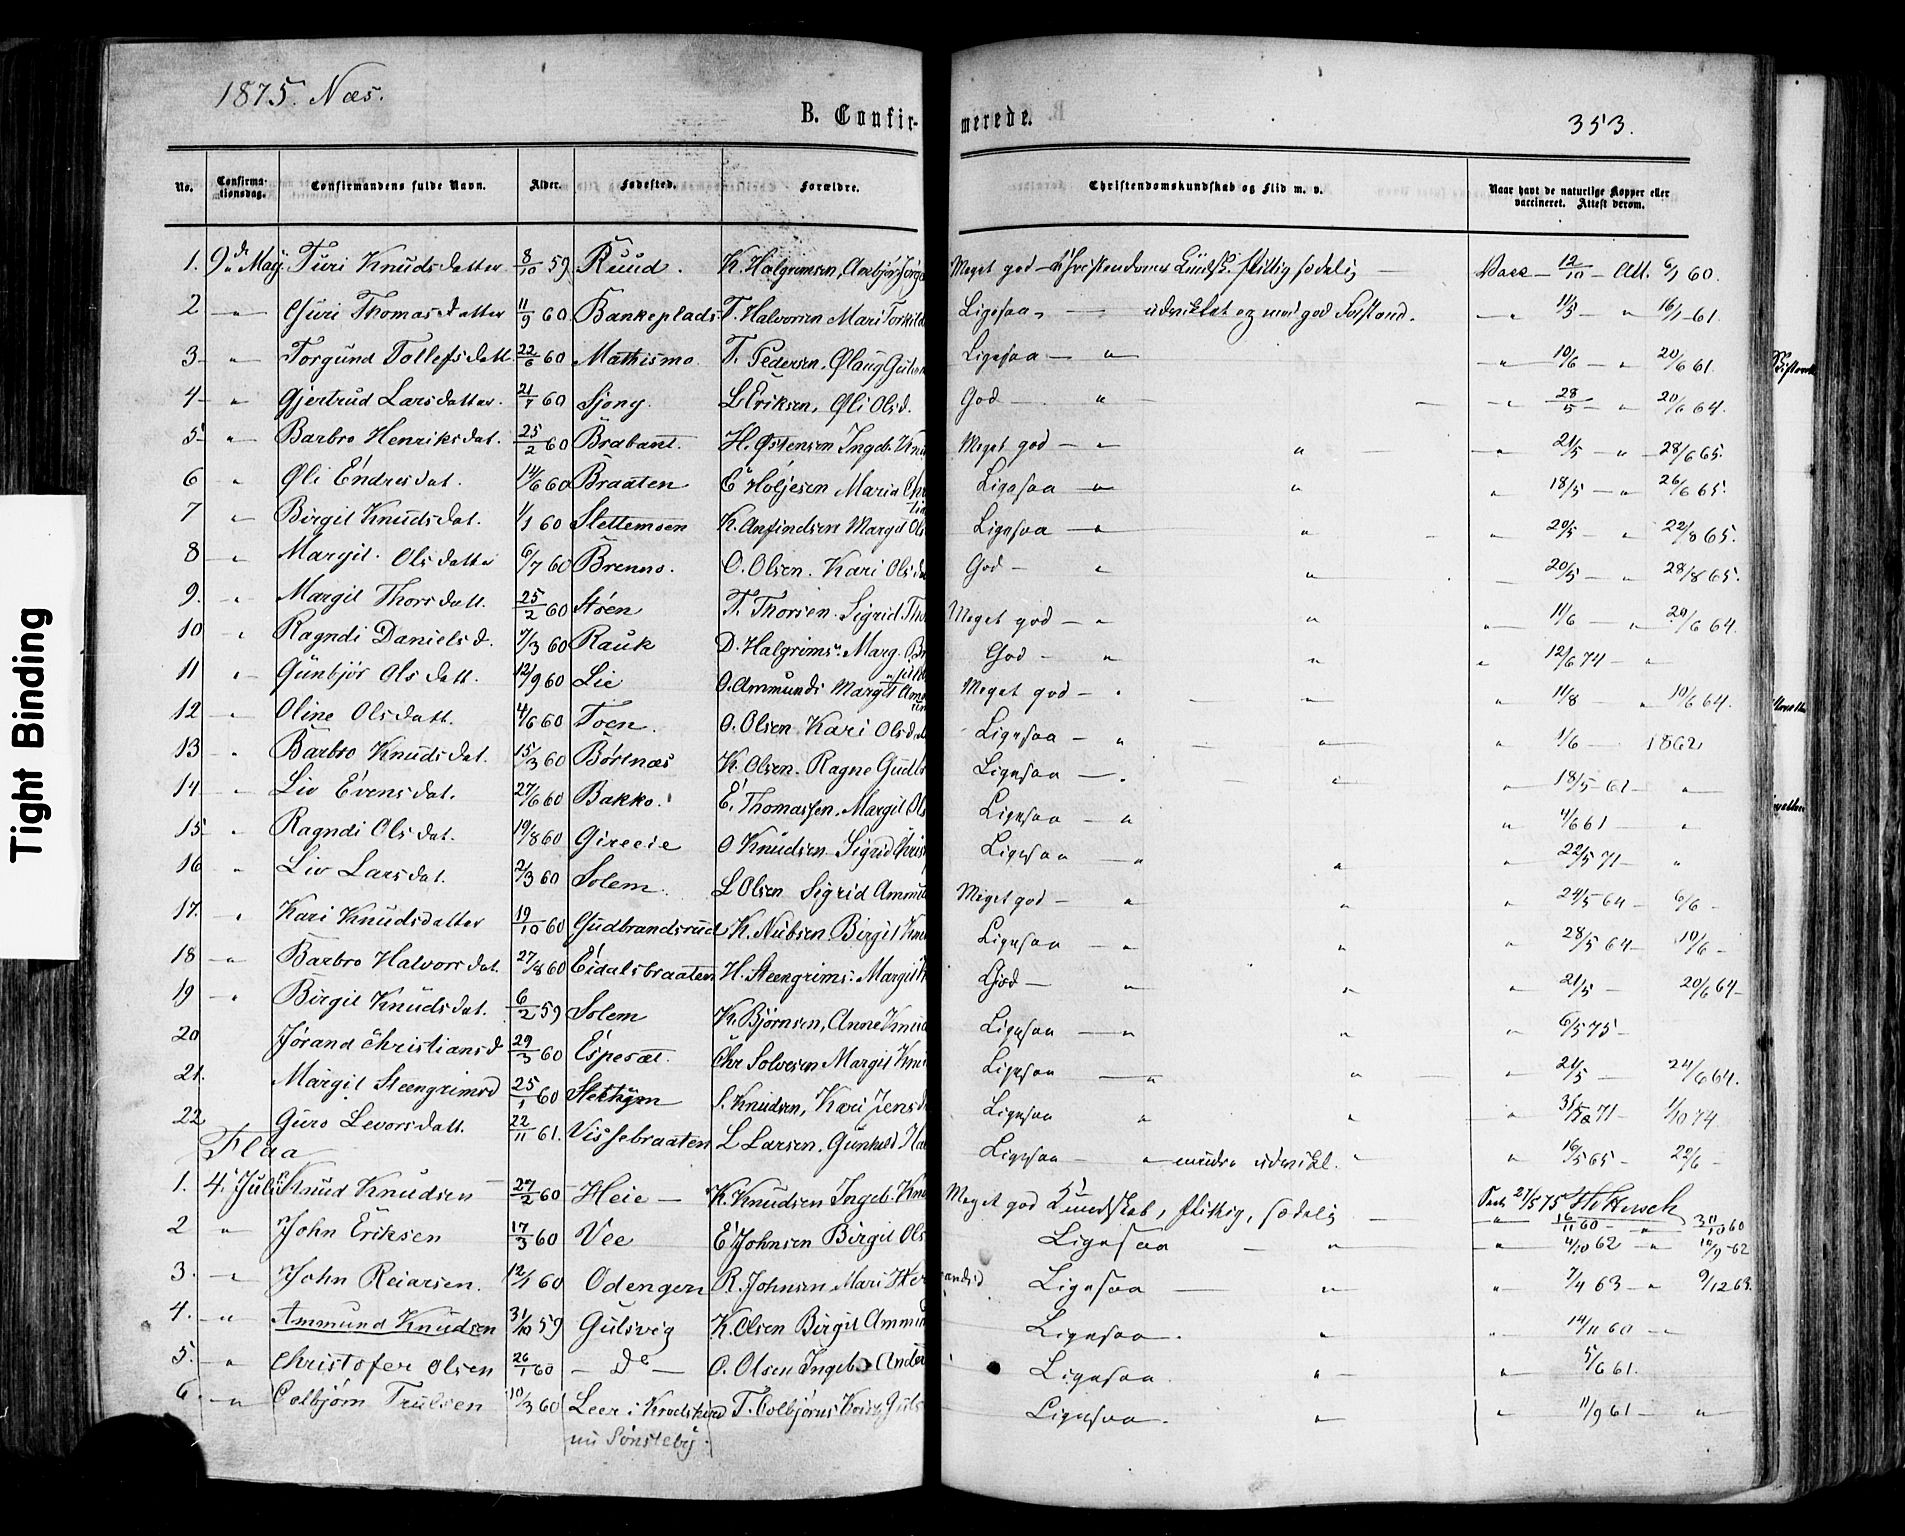 1875. Næs.
B. Confir-
merede.
353.
No. Confirma-tionsdag. Confirmandens fulde Navn. Alder. Fødested. Forældre. Christendomskundskab og Flid m. v. Naar havt de naturlige Kopper eller vaccineret. Attest derom.
1. 9de May. Turi Knudsdatter 8/10 59 Ruud. K. Halgrimsen, Meget god Christendoms Kundsk. flittig sædelig — Vacc — 12/10 — Att. 6/1 60.
2 " Guri Thomasdatter 11/9 60 Bankeplads T. Halvorsen Mari Torkild Ligesaa, — udviklet og med god Forstand. — 11/5 — " 16/1 61.
3 — " Torgund Tollefsdatt. 22/6 60 Mathismo. T. Pedersen, Ølaug Gul Ligesaa — " " 10/6 — " 20/6 61.
4 — " Gjertrud Larsdatter 21/7 60 Sjong. L Eriksen, Øli Olsd. God — " — " 28/5 — " 20/6 64.
5 — " Barbro Henriksdat. 25/2 60 Brabant. H. Østensen Ingeb. Knu Meget god — " " — " 21/5 — " 28/6 65.
6 " Øli Endresdat. 14/6 60 Braaten E Holjesen Maria Chr Ligesaa — " " " 18/5 — " 26/6 65.
7 " Birgit Knudsdat. 1/1 60 Slettemoen K. Anfindsen Margit Ols Ligesaa — " " — " 20/5 — " 22/8 65.
8 — " Margit Olsdatter 6/7 60 Brenno. O. Olsen. Kari Olsda God — " " — 20/5 — " 28/8 65.
9. — " Margit Thorsdatt. 25/2 60 Støen T. Thorsen. Sigrid Tho Meget god — " " " 11/6 — " 20/6 64.
10 " Ragndi Daniels d. 7/3 60 Rauk D. Halgrims: Marg. God — " " " 12/6 74 — "
11 " Gunbjør Olsdatt. 12/9 60 Lie O. Ammunds Margit Am Meget god — " " " 11/8 — " 10/6 64.
12 — " Oline Olsdatt. 4/6 60 Toen. O. Olsen Kari Olsda Ligesaa — " — " " 1/6 — 1862
13 " Barbro Knudsdat. 15/3 60 Børtnæs K. Olsen. Ragne Gudb Ligesaa — " " " 18/5 61 — "
14 — " Liv Evensdat. 27/6 60 Bakko. E. Thomassen. Margit Ols Ligesaa — " " 4/6 61 — "
15 " Ragndi Olsdat. 19/8 60 Gireeie O Knudsen Sigrid Chris Ligesaa — " " " 22/5 71 — "
16 " Liv Larsdat. 2/3 60 Solem. L Olsen Sigrid Ammu Meget god — " " " 24/5 64 — 6/6 —
17. " Kari Knudsdatter 19/10 60 Gudbrandsrud K. Nubsen Birgit Knu Ligesaa — " " " 28/5 64 — 10/6 —
18 — " Barbro Halvorsdat. 27/8 60 Eidalsbraaten H. Steengrims: Margit God — " " " 21/5 — 20/6 64 —
19 — " Birgit Knudsdat. 6/2 59 Solem K. Bjørnsen, Anne Knud Ligesaa — " " " 6/5 75 —
20 Jørand Christiansd 29/3 60 Espeset. Chr Solvesen Margit Knu Ligesaa — " " " 21/5 — 24/6 64.
21. Margit Steengrimsd 25/1 60 S. Knudsen, Kari Jensda Ligesaa " " " 71 — 1/10 74.
22 Guro Levorsdatt. 22/11 61. Vissebraaten L Larsen. Gunhild Hal Ligesaa — " mindre udvikl. " " 16/5 65 — 22/6 —
Flaa
1. 4. Juli Knud Knudsen 27/2 60 — Heie — K. Knudsen Ingeb. Knu Meget god Kundskab, flittig, sædelig — 27/5 75
2 " John Eriksen 17/3 60 Vee E Johnsen Birgit Ols Ligesaa — " " 4/10 62 — " 62
3. — " John Reiarsen. 12/1 60 Odengen R. Johnsen Mari Her Ligesaa — " " 7/4 63 — " 9/12 63.
4. — " Ammund Knudsen 31/10 59 Gulsvig K. Olsen Birgit Ammu Ligesaa. " " 14/11 60 — "
5. — " Christofer Olsen 26/1 60 — Do — O. Olsen Ingeb. Ander Ligesaa. " " 5/6 61.
6. — " Colbjørn Trulsen 10/3 60 Leer i Krødsherad T. Colbjørns Ligesaa. " " 11/9 61 — "
nu Sønsteby.
Tight Binding